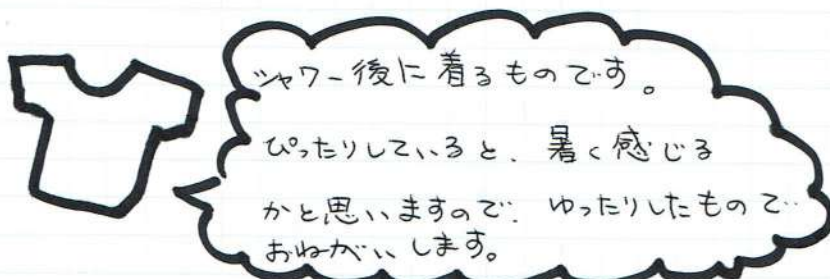 シャワー後に着るものです。
ぴったりしていると、暑く感じる
かと思いますので、ゆったりしたもので
おねがいします。